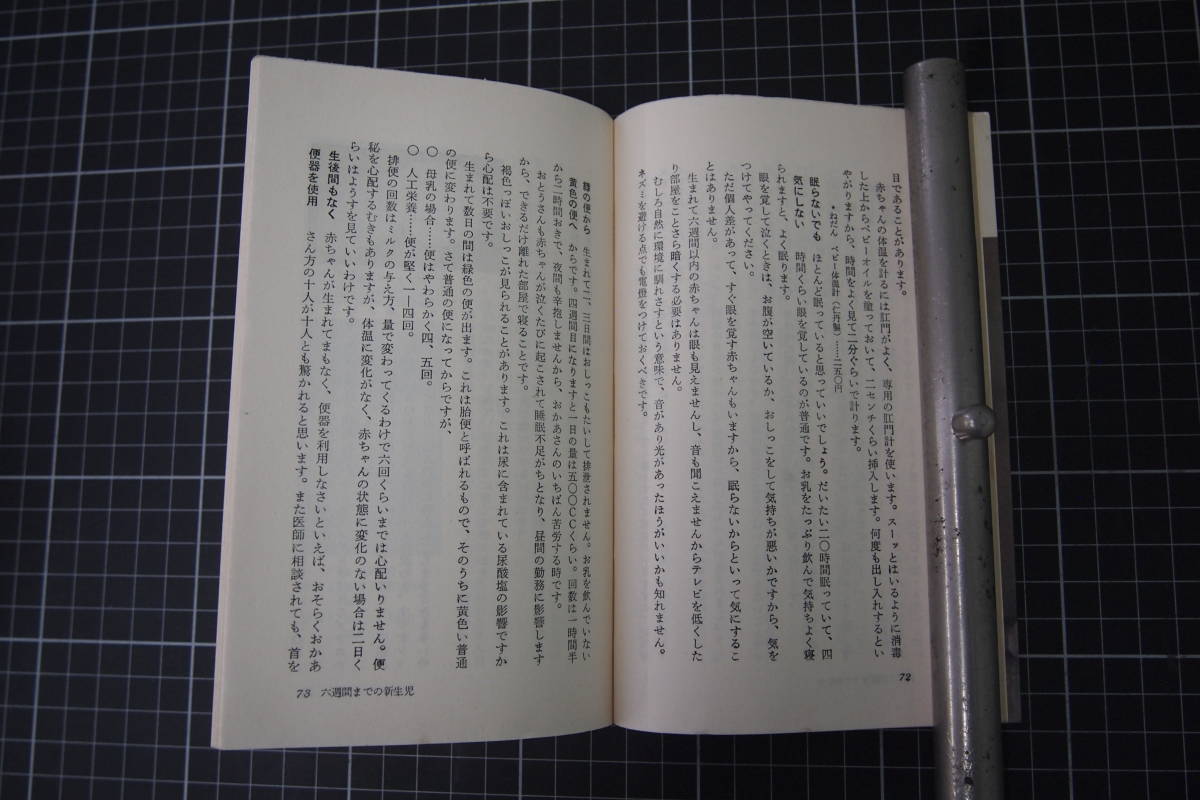 目であることがあります。
赤ちゃんの体温を計るには肛門がよく、専用の肛門計を使います。スーッとはいるように消毒
した上からベビーオイルを塗っておいて、二センチくらい挿入します。何度も出し入れするとい
やがりますから、時間をよく見て二分ぐらいで計ります。
*ねだん ベビー体温計(仁丹製)……二五〇円
眠らないでも
気にしない
ほとんど眠っていると思っていいでしょう。だいたい二〇時間眠っていて、四
時間くらい眼を覚しているのが普通です。お乳をたっぷり飲んで気持ちよく寝
られますと、よく眠ります。
眼を覚して泣くときは、お腹が空いているか、おしっこをして気持ちが悪いかですから、気を
つけてやってください。
ただ個人差があって、すぐ眼を覚す赤ちゃんもいますから、眠らないからといって気にするこ
とはありません。
生まれて六週間以内の赤ちゃんは眼も見えませんし、音も聞こえませんからテレビを低くした
り部屋をことさら暗くする必要はありません。
むしろ自然に環境に馴れさすという意味で、音があり光があったほうがいいかも知れません。
ネズミを避ける点でも電燈をつけておくべきです。
72
緑の便から
黄色の便へ
生まれて二、三日間はおしっこもたいして排泄されません。お乳を飲んでいない
からです。四週間目になりますと一日の量は五〇〇CCくらい。回数は一時間半
から二時間おきで、夜間も辛抱しませんから、おかあさんのいちばん苦労する時です。
おとうさんも赤ちゃんが泣くたびに起こされて睡眠不足がちとなり、昼間の勤務に影響します
から、できるだけ離れた部屋で寝ることです。
褐色っぽいおしっこが見られることがあります。これは尿に含まれている尿酸塩の影響ですか
ら心配は不要です。
生まれて数日の間は緑色の便が出ます。これは胎便と呼ばれるもので、そのうちに黄色い普通
の便に変わります。さて普通の便になってからですが、
○ 母乳の場合……便はやわらかく四、五回。
○ 人工栄養……便が堅く一—四回。
排便の回数はミルクの与え方、量で変わってくるわけで六回くらいまでは心配いりません。便
秘を心配するむきもありますが、体温に変化がなく、赤ちゃんの状態に変化のない場合は二日く
らいはようすを見ていいわけです。
生後間もなく
便器を使用
赤ちゃんが生まれてまもなく、便器を利用しなさいといえば、おそらくおかあ
さん方の十人が十人とも驚かれると思います。また医師に相談されても、首を
73 六週間までの新生児